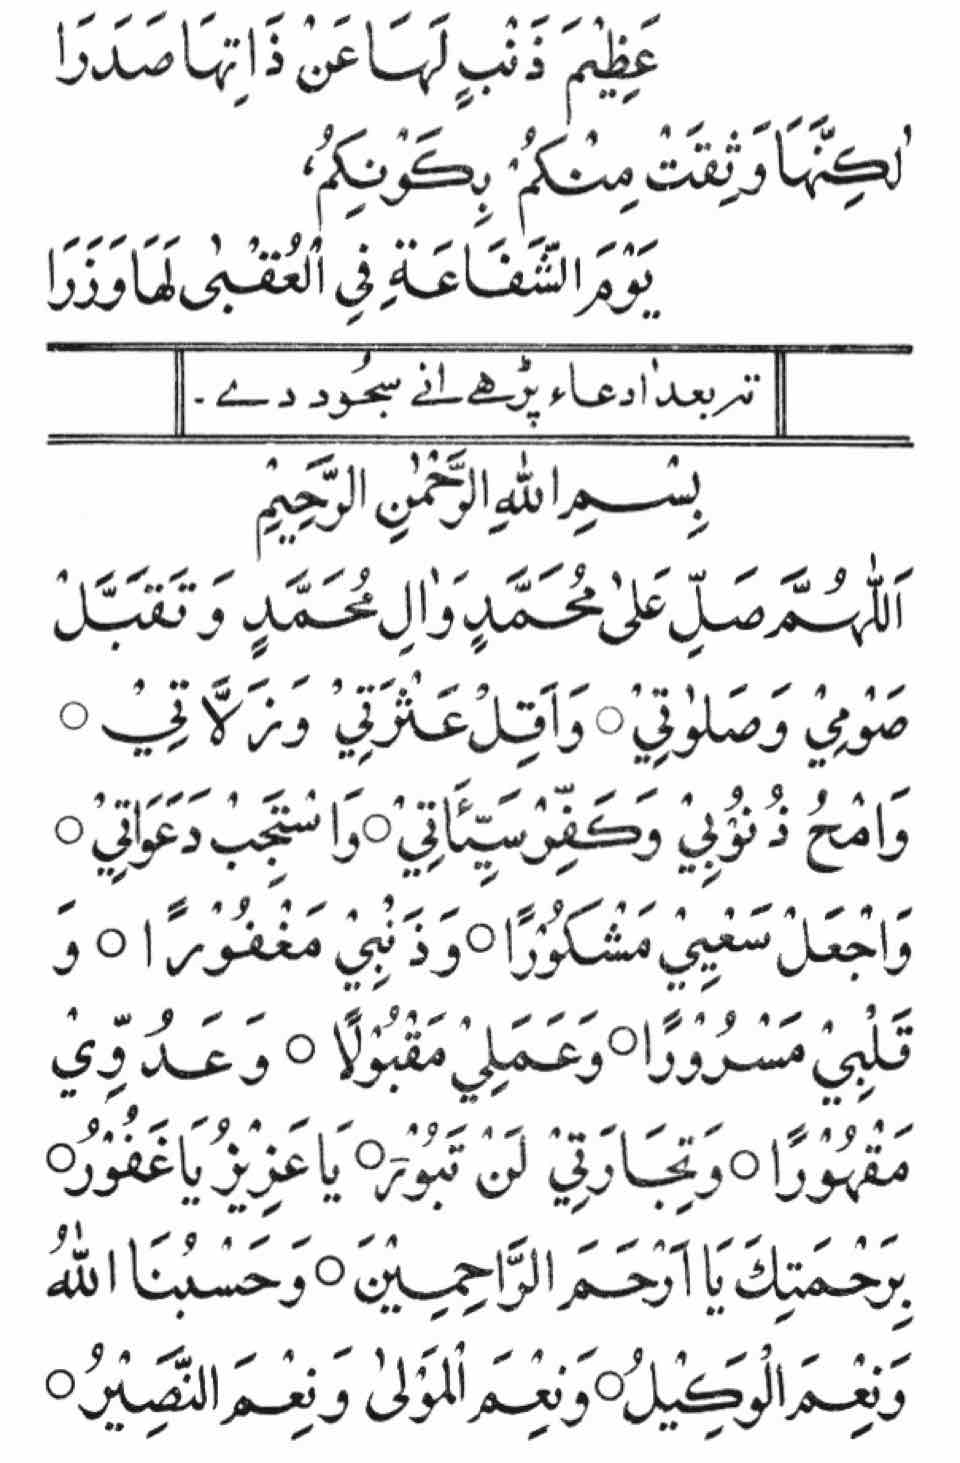 عَظِيْمَ ذَنْبٍ لَهَا عَنْ ذَاتِهَا صَدَرَا
لٰكِنَّهَا وَثِقَتْ مِنْكُمْ بِكَوْنِكُمْ،
يَوْمَ الشَّفَاعَةِ فِي الْعُقْبٰى لَهَا وَزَرَا
تہ بعد اٰ دعاء پڑھے انے سجُود دے ۔
بِسْمِ اللهِ الرَّحْمٰنِ الرَّحِيْمِ
اَللّٰهُمَّ صَلِّ عَلىٰ مُحَمَّدٍ وَاٰلِ مُحَمَّدٍ وَتَقَبَّلْ
صَوْمِيْ وَصَلٰوتِيْ ○ وَاَقِلْ عَثْرَتِيْ وَزَلَّاتِيْ ○
وَامْحُ ذُنُوْبِيْ وَكَفِّرْ سَيِّئَاتِيْ ○ وَاسْتَجِبْ دَعَوَاتِيْ ○
وَاجْعَلْ سَعْيِيْ مَشْكُوْرًا ○ وَذَنْبِيْ مَغْفُوْرًا ○ وَ
قَلْبِيْ مَسْرُوْرًا ○ وَعَمَلِيْ مَقْبُوْلًا ○ وَعَدُوِّيْ
مَقْهُوْرًا ○ وَتِجَارَتِيْ لَنْ تَبُوْرَ ○ يَا عَزِيْزُ يَا غَفُوْرُ ○
بِرَحْمَتِكَ يَا اَرْحَمَ الرَّاحِمِيْنَ ○ وَحَسْبُنَا اللهُ
وَنِعْمَ الْوَكِيْلُ ○ وَنِعْمَ الْمَوْلىٰ وَنِعْمَ النَّصِيْرُ ○